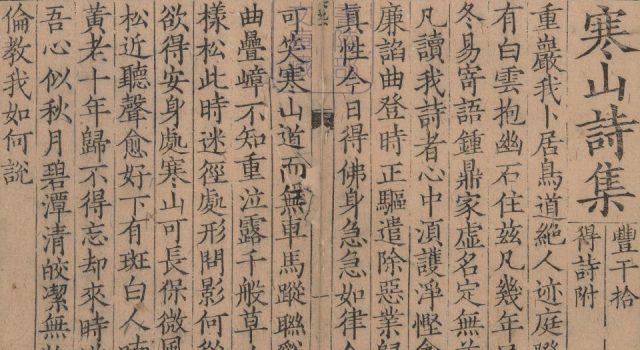 寒山詩集
豐干拾
得詩附
重巖我卜居鳥道絶人迹庭際
有白雲抱幽石住茲凡幾年
冬易寄語鍾鼎家虛名定無
凡讀我詩者心中須護淨慳
廉諂曲登時正驅遣除惡業歸
眞性今日得佛身急急如律令
可笑寒山道而無車馬蹤聯谿
曲疊嶂不知重泣露千般草
樣松此時迷徑處形問影何從
欲得安身處寒山可長保微風
松近聽聲愈好下有斑白人
黃老十年歸不得忘却來時
吾心似秋月碧潭清皎潔無
倫教我如何說